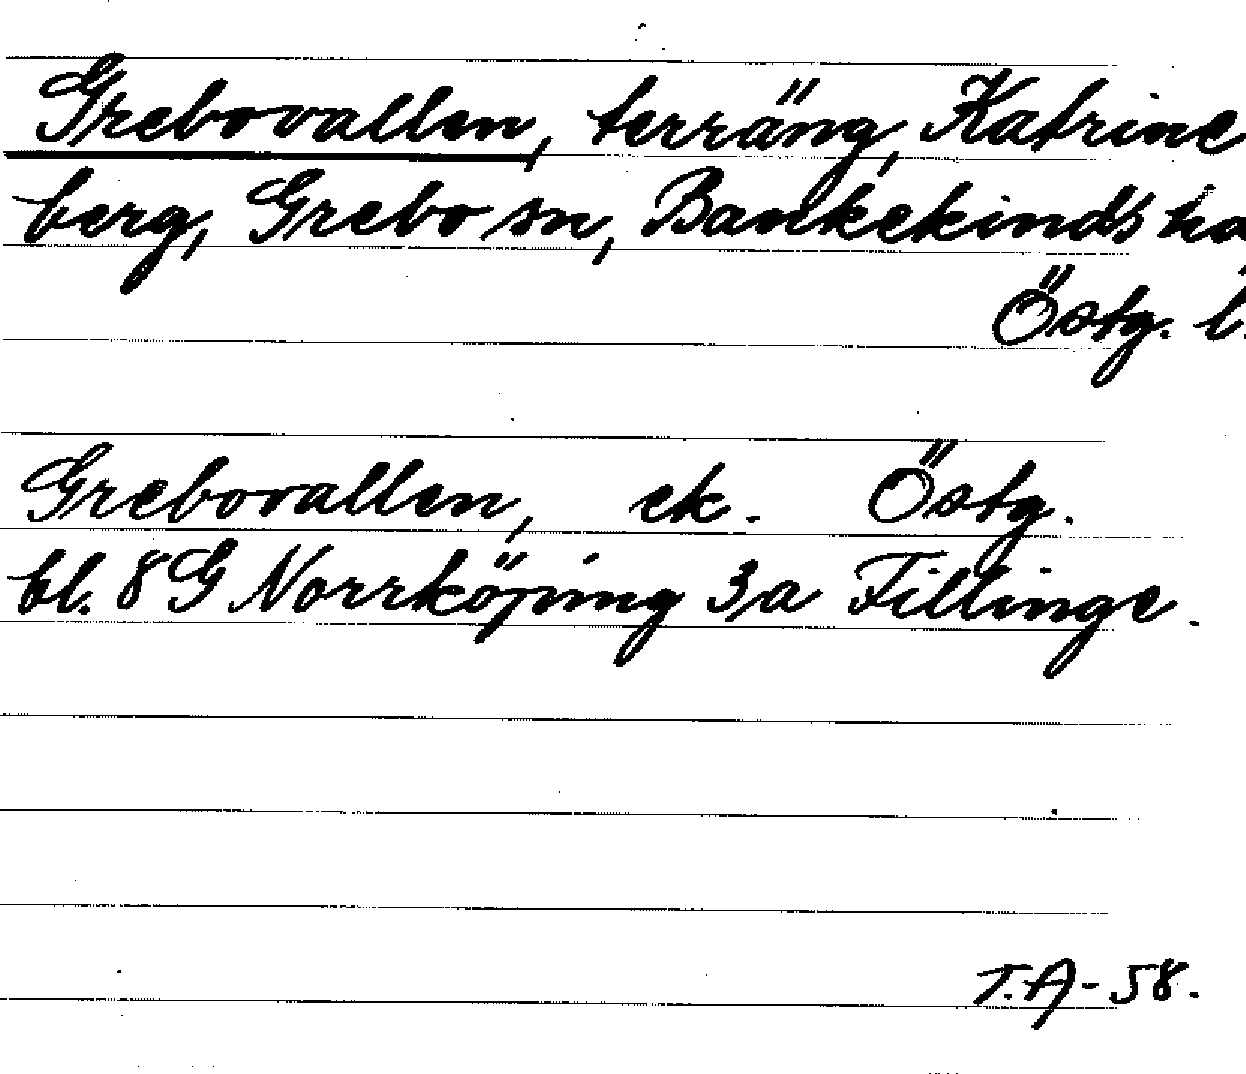 Grebovallen, terräng, Katrine
berg, Grebo sn, Bankekinds ha
Östg. l.
Grebovallen, ek. Östg.
bl. 8 G Norrköping 3/a Fillinge.
T.A-58.